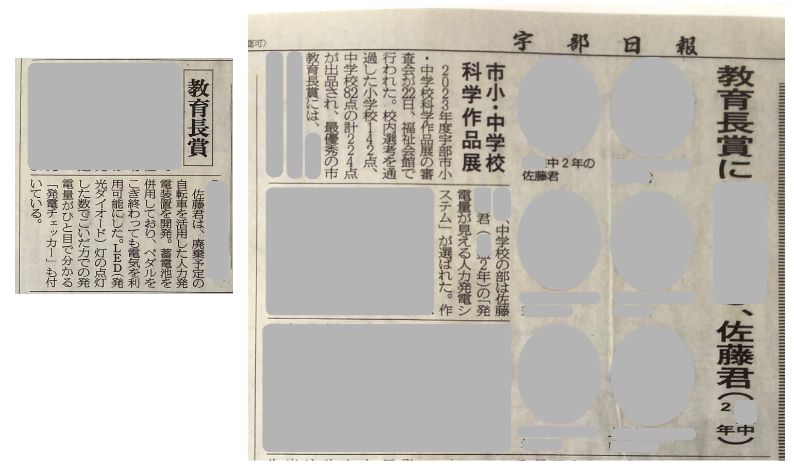 教育長賞
佐藤君は、廃棄予定の
自転車を活用した人力発
電装置を開発。蓄電池を
併用しており、ペダルを
こぎ終わっても電気を利
用可能にした。LED(発
光ダイオード)灯の点灯
した数でこいだ力での発
電量がひと目で分かる
「発電チェッカー」も付
いている。
宇部日報
教育長賞に
、佐藤君(
中2年)
中2年の
佐藤君
市小・中学校
科学作品展
2023年度宇部市小
・中学校科学作品展の審
査会が22日、福祉会館で
行われた。校内選考を通
過した小学校142点、
中学校82点の計224点
が出品され、最優秀の市
教育長賞には、
、中学校の部は佐藤
君(
2年)の「発
電量が見える人力発電シ
ステム」が選ばれた。作